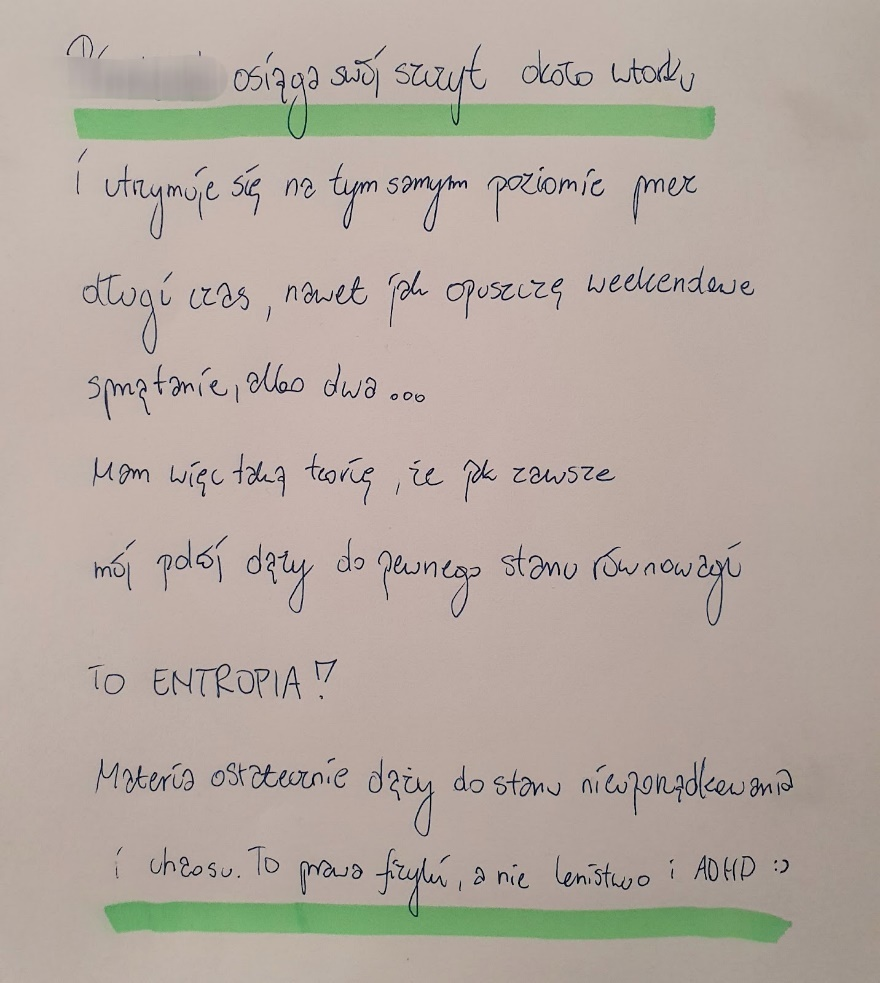 osiąga swój szczyt około wtorku
i utrzymuje się na tym samym poziomie przez
długi czas, nawet jak opuszczę weekendowe
sprzątanie, albo dwa...
Mam więc taką teorię, że jak zawsze
mój pokój dąży do pewnego stanu równowagi
TO ENTROPIA!!
Materia ostatecznie dąży do stanu nieuporządkowania
i chaosu. To prawa fizyki, a nie lenistwo i ADHD :)